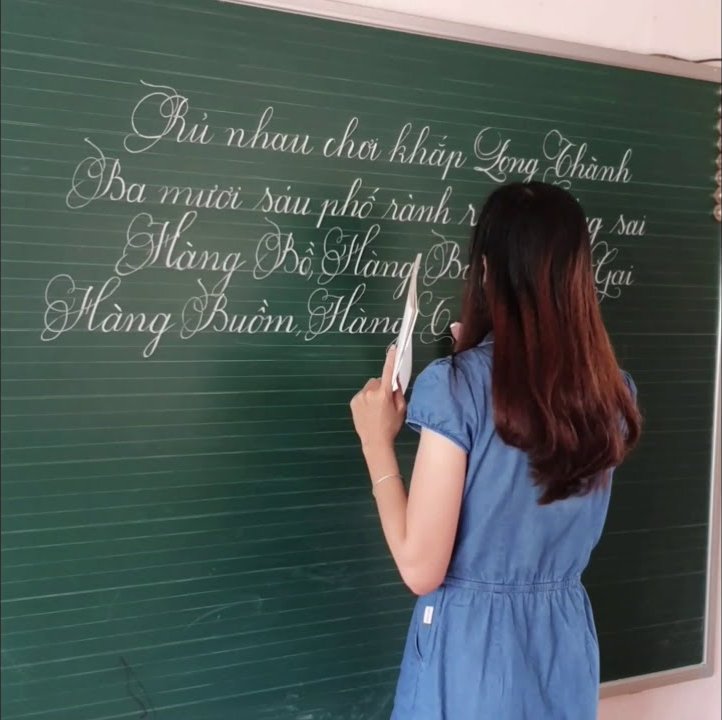 Rủ nhau chơi khắp Long Thành
Ba mươi sáu phố rành r g sai
Hàng Bồ, Hàng B Gai
Hàng Buồm, Hàng T